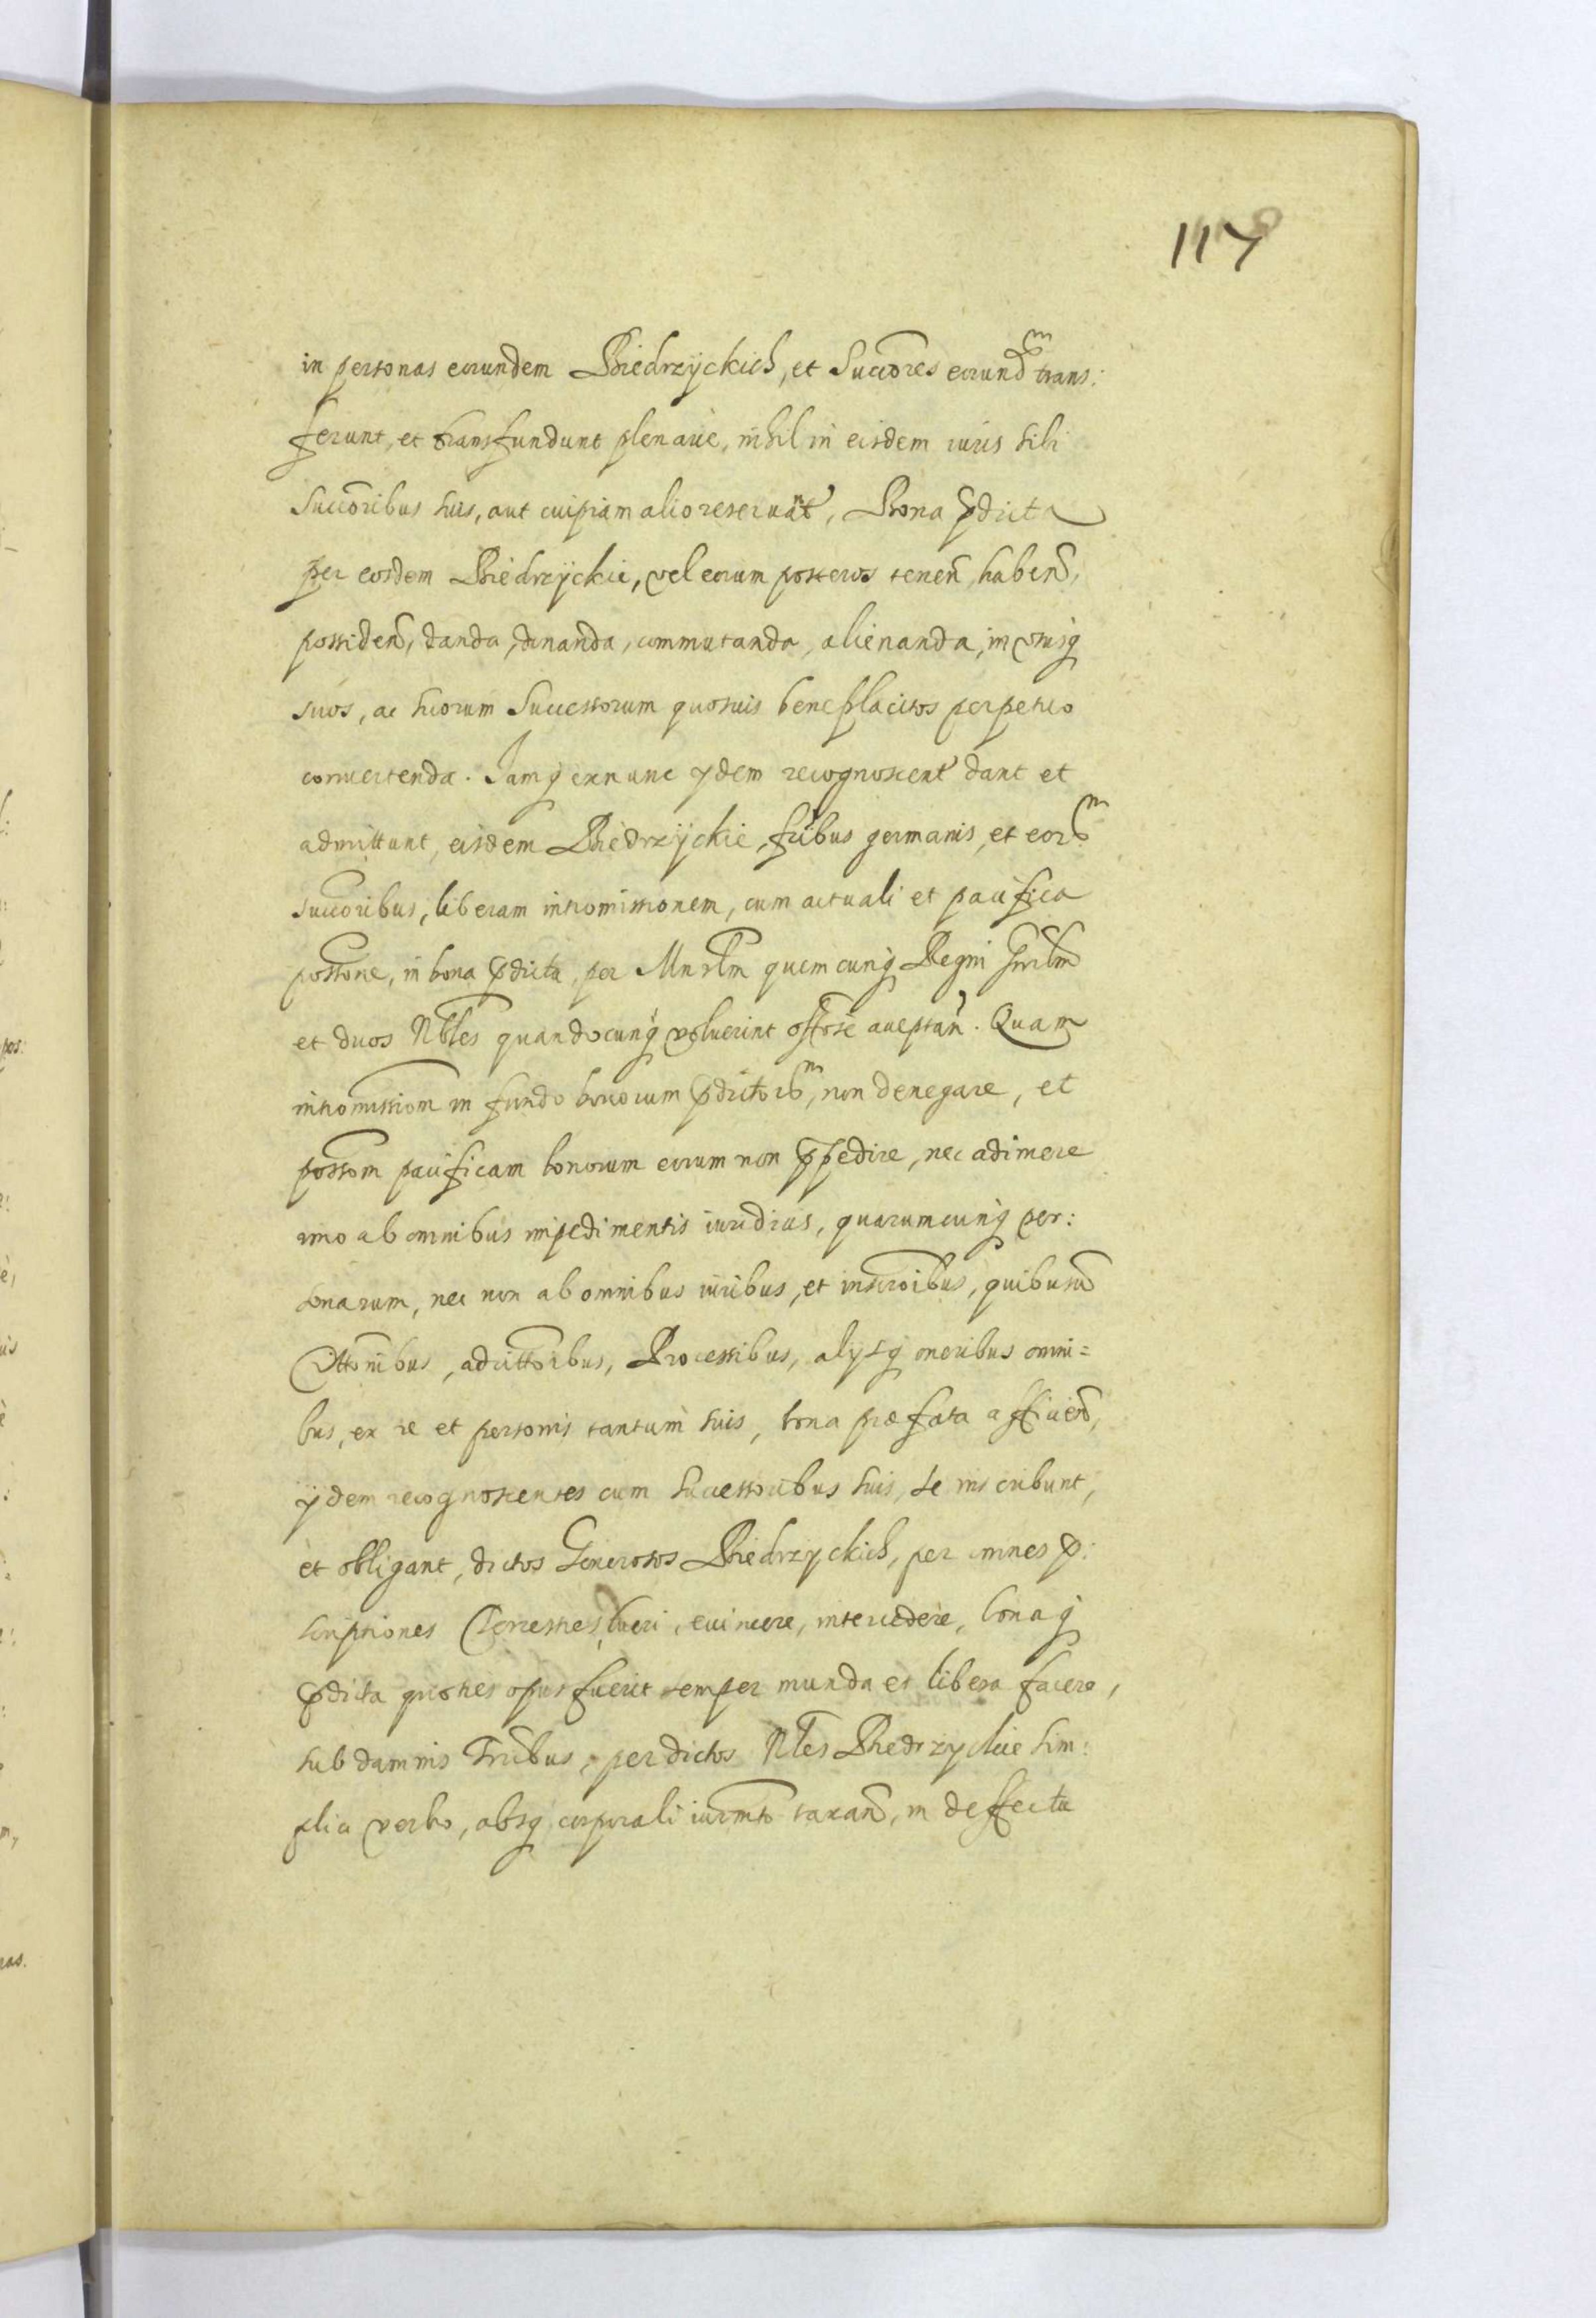 117
in personas eorundem Biedrzyckich, et Succōres eorundm trans:
ferunt, et transfundunt plenarie, nihil in eisdem iuris sibi
succōribus suis, aut cuipiam alio reseruant, Bona pdicta
per eosdem Biedrzyckie, vel eorum posteros tenen̄, haben̄,
possiden̄, danda, donanda, commutanda, alienanda, in vsusq
suos, ac suorum Successorum quosuis beneplacitos perpetuo
conuertenda. Iamq ex nunc ydem recognoscent dant et
admittunt, eisdem Biedrzyckie, fribus germanis, et eorm
succōribus, liberam intromissionem, cum actuali et pacifica
possone, in bona pdicta, per Mnrlm quemcunq Regni Gnrlm
et duos Nbles quandocunq voluerint offose acceptan̄. Quam
intromissiom in fundo bonorum pdictorm, non denegare, et
possom pacificam bonorum eorum non ppedire, nec adimere
imo ab omnibus impedimentis iuridicis, quarumcunq per:
sonarum, nec non ab omnibus iuribus, et inscrōibus, quibusd
Cittōnibus, adcittōibus, Processibus, alysq oneribus omni=
bus, ex re et personis tantum suis, bona præfata afficien̄,
ydem recognoscentes cum successoribus suis, se inscribunt,
et obligant, dictos Generosos Biedrzyckich, per omnes p:
scriptiones Terrestres tueri, euincere, intercedere, bonaq
pdicta quoties opus fuerit semper munda et libera facere,
sub damnis Trribus, per dictos Nles Biedrzyckie sim:
plici verbo, absq corporali iurmto taxan̄, in deffectu